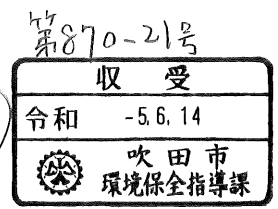 第870-21号
収受
令和 -5.6.14
吹田市
環境保全指導課